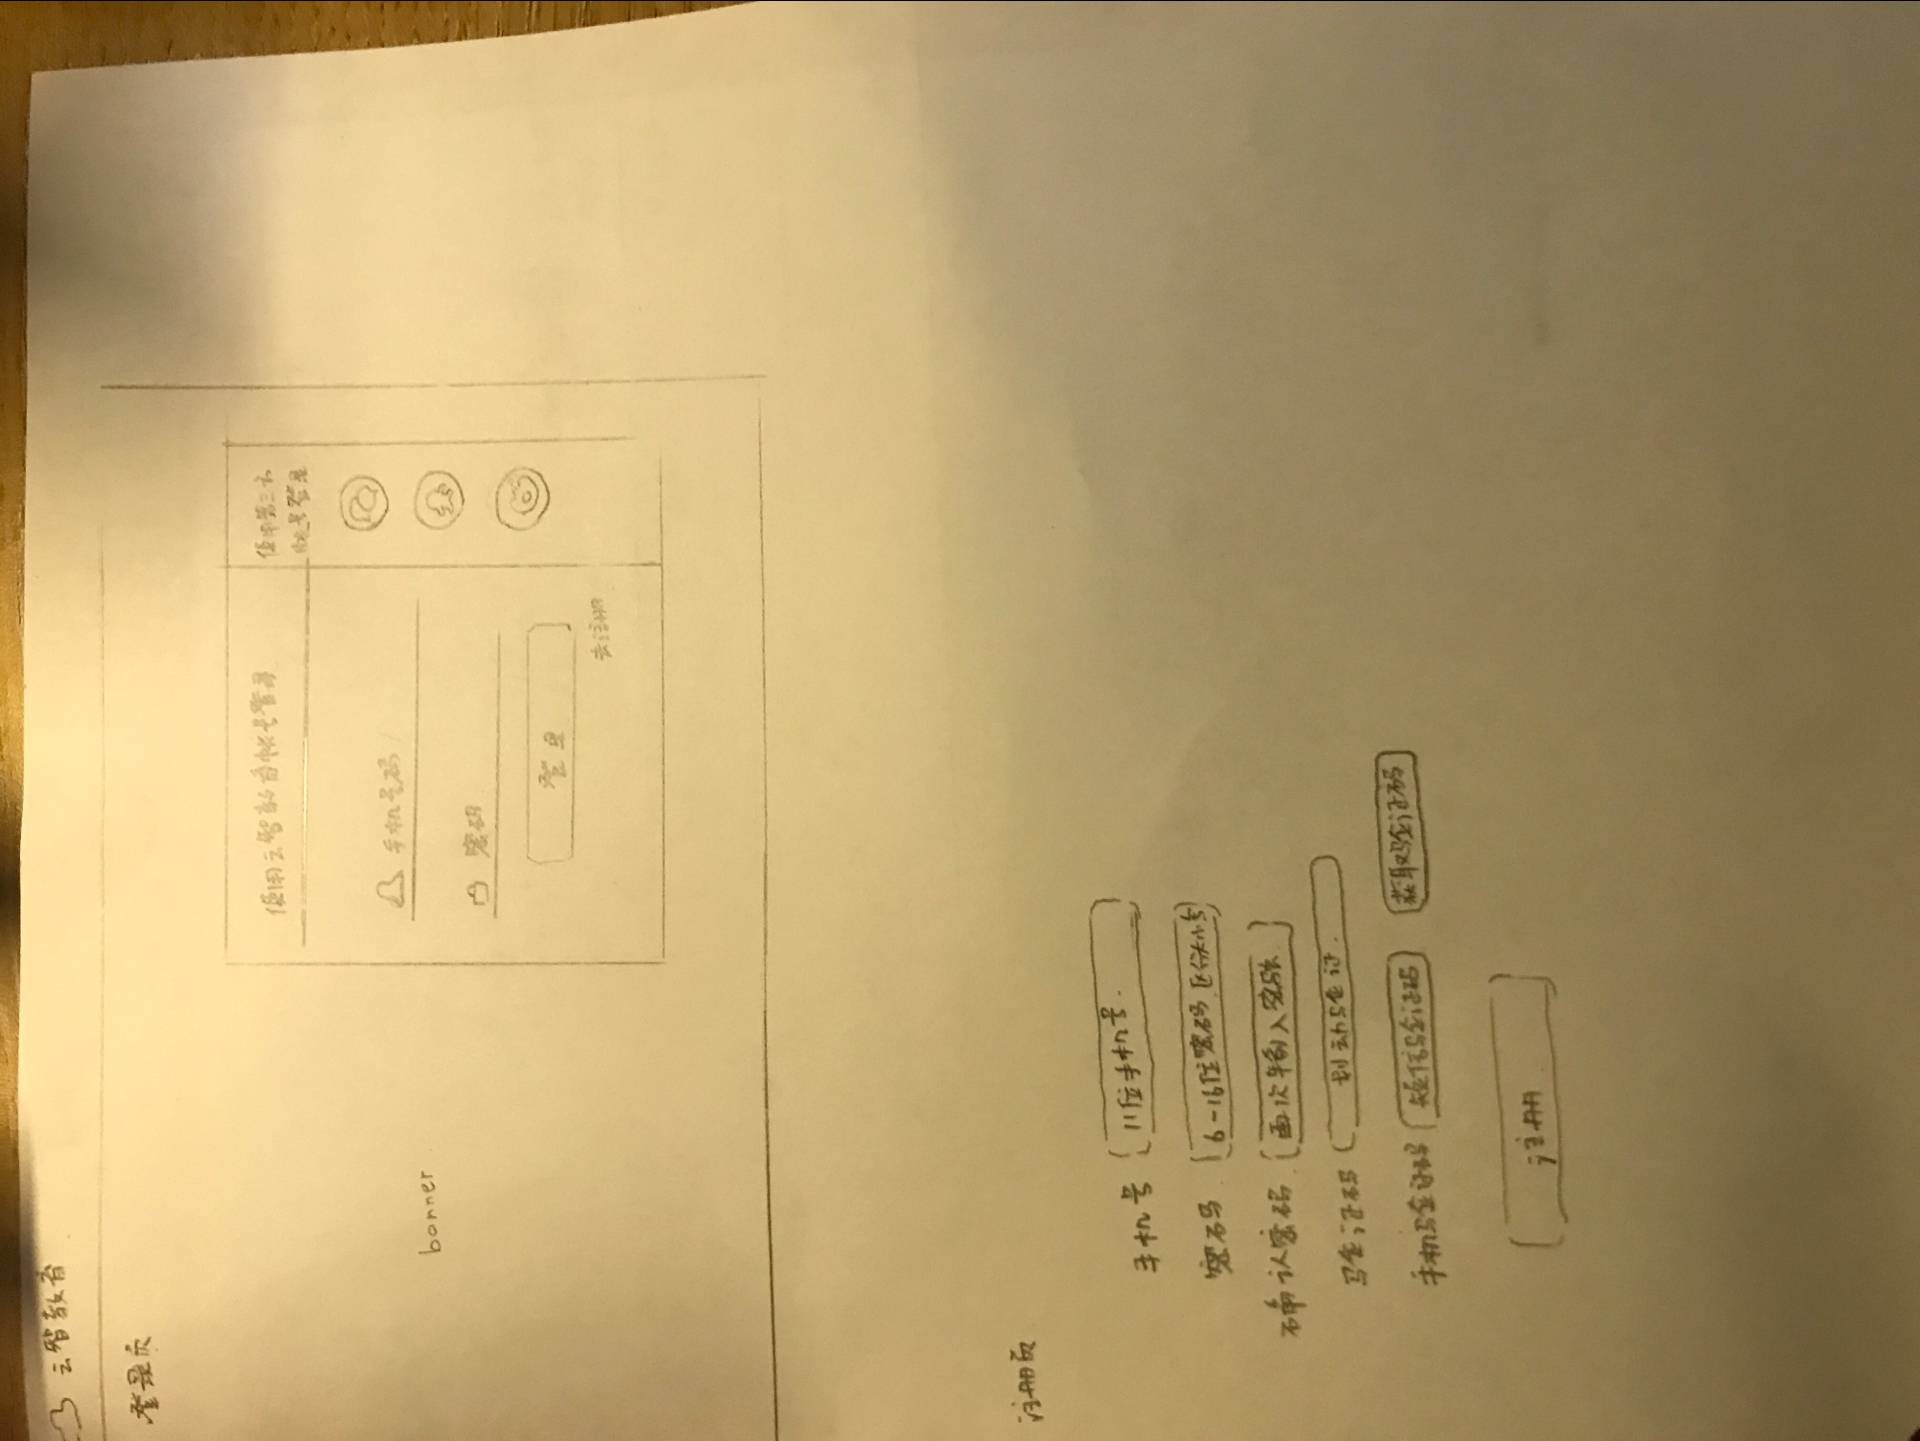 云智教育
登录页
使用云智教育帐号登录
使用第三方
帐号登录
手机号码
banner
密码
登录
去注册
注册页
手机号 11位手机号.
密码 6-16位密码 区分大小写
确认密码 再次输入密码
验证码 划动验证.
手机验证码 短信验证码 获取验证码
注册